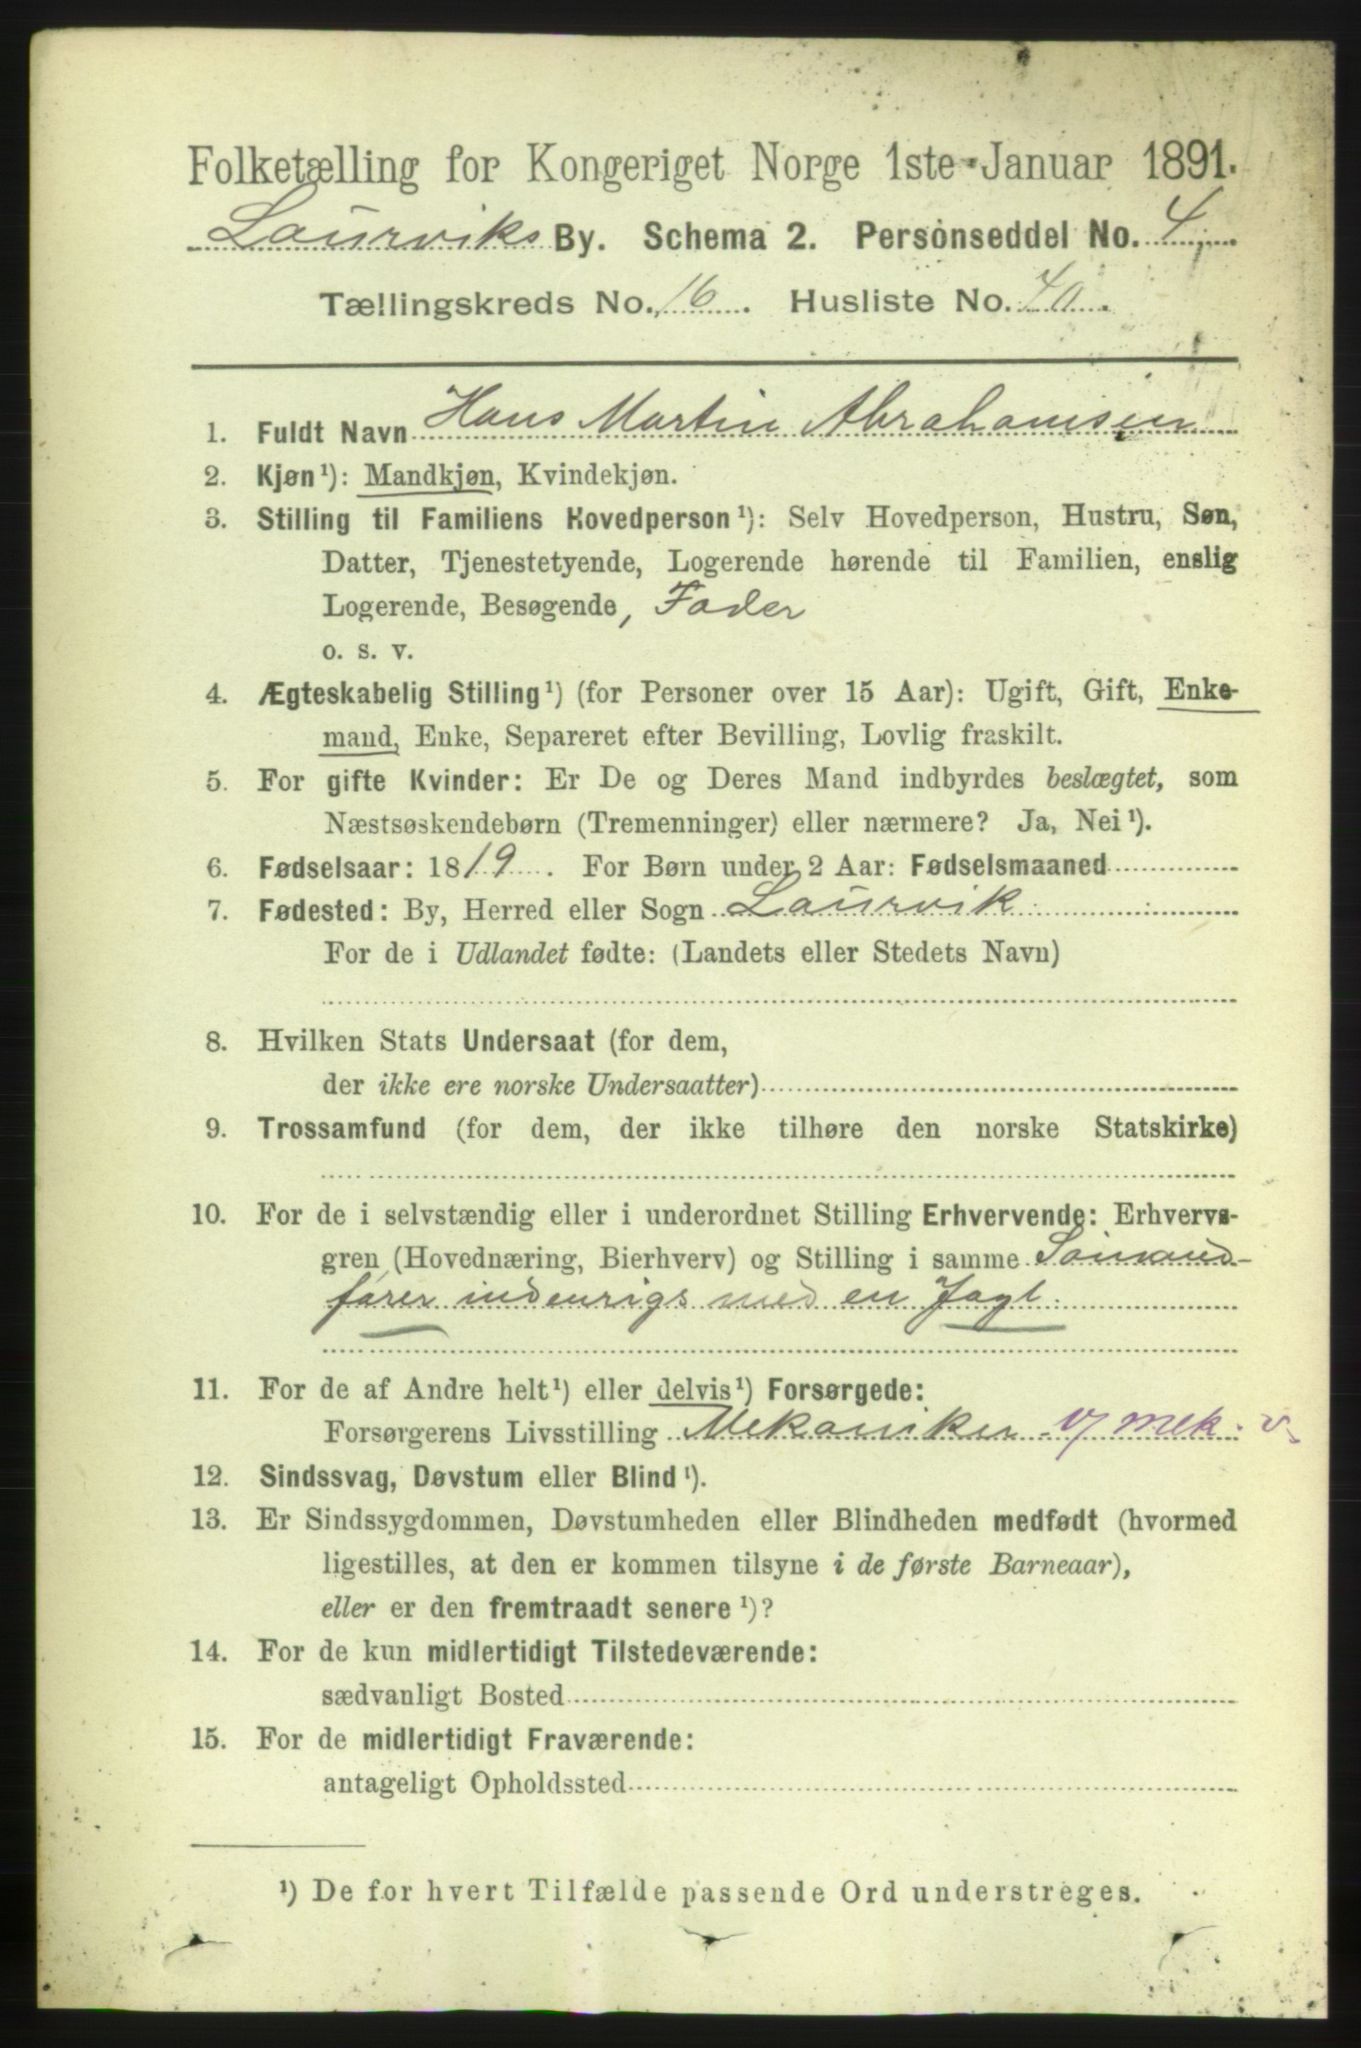 Folketælling for Kongeriget Norge 1ste Januar 1891.
Laurviks By. Schema 2. Personseddel No. 4
Tællingskreds No. 16. Husliste No. 40.
1. Fuldt Navn Hans Martin Abrahamsen
2. Kjøn¹): Mandkjøn, Kvindekjøn.
3. Stilling til Familiens Hovedperson¹): Selv Hovedperson, Hustru, Søn,
Datter, Tjenestetyende, Logerende hørende til Familien, enslig
Logerende, Besøgende, Fader
o. s. v.
4. Ægteskabelig Stilling¹) (for Personer over 15 Aar): Ugift, Gift, Enke-
mand, Enke, Separeret efter Bevilling, Lovlig fraskilt.
5. For gifte Kvinder: Er De og Deres Mand indbyrdes beslægtet, som
Næstsøskendebørn (Tremenninger) eller nærmere? Ja, Nei¹).
6. Fødselsaar: 1819. For Børn under 2 Aar: Fødselsmaaned
7. Fødested: By, Herred eller Sogn Laurvik
For de i Udlandet fødte: (Landets eller Stedets Navn)
8. Hvilken Stats Undersaat (for dem,
der ikke ere norske Undersaatter)
9. Trossamfund (for dem, der ikke tilhøre den norske Statskirke)
10. For de i selvstændig eller i underordnet Stilling Erhvervende: Erhvervs-
gren (Hovednæring, Bierhverv) og Stilling i samme
fører indenrigs med en Jagt.
11. For de af Andre helt¹) eller delvis¹) Forsørgede:
Forsørgerens Livsstilling Mekaniker v/ mek. v.
12. Sindssvag, Døvstum eller Blind¹).
13. Er Sindssygdommen, Døvstumheden eller Blindheden medfødt (hvormed
ligestilles, at den er kommen tilsyne i de første Barneaar),
eller er den fremtraadt senere¹)?
14. For de kun midlertidigt Tilstedeværende:
sædvanligt Bosted
15. For de midlertidigt Fraværende:
antageligt Opholdssted
¹) De for hvert Tilfælde passende Ord understreges.